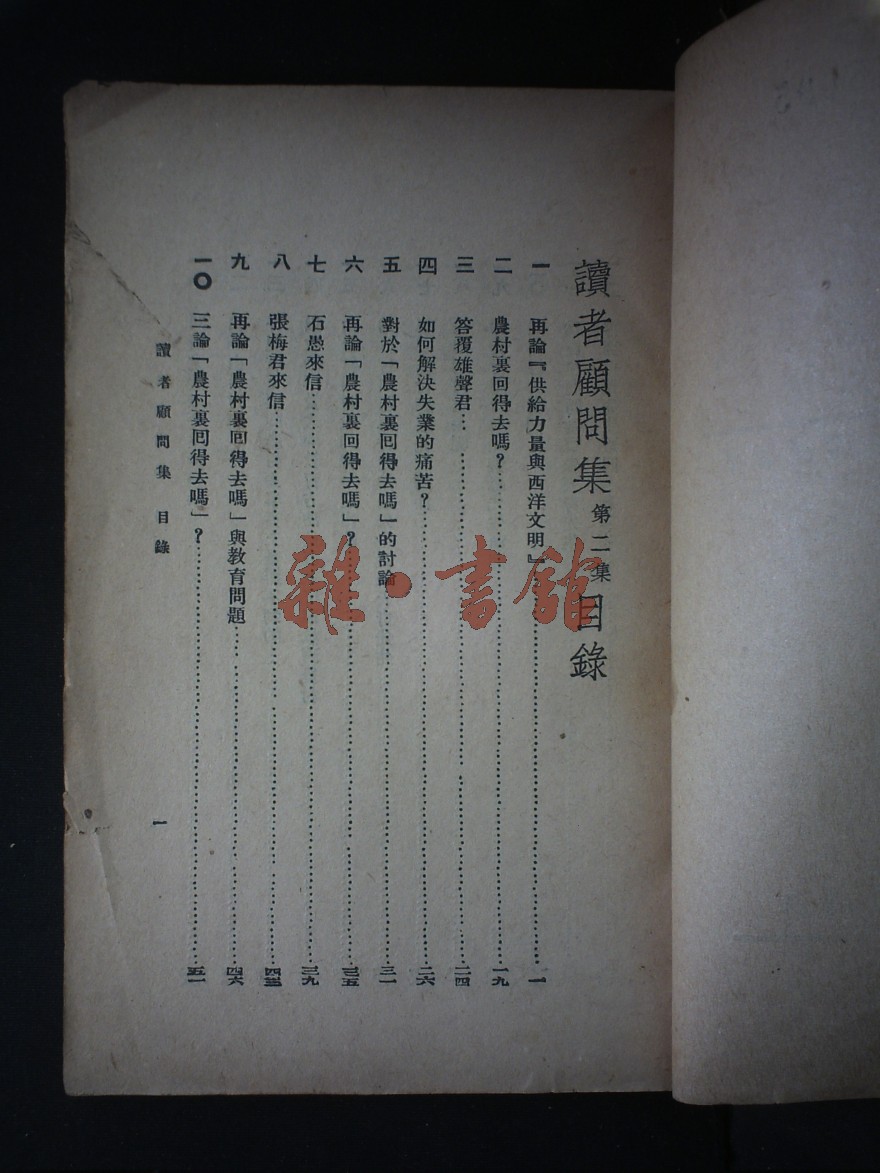 讀者顧問集 第二集 目錄
一 再論『供給力量與西洋文明』……一
二 農村裏回得去嗎?……一九
三 答覆雄聲君……二四
四 如何解決失業的痛苦?……二六
五 對於「農村裏囘得去嗎」的討論……三一
六 再論「農村裏囘得去嗎」?……三五
七 石愚來信……三九
八 張梅君來信……四三
九 再論「農村裏囘得去嗎」與教育問題……四六
一〇 三論「農村裏囘得去嗎」?……五一
讀者顧問集 目錄
一
雜·書館